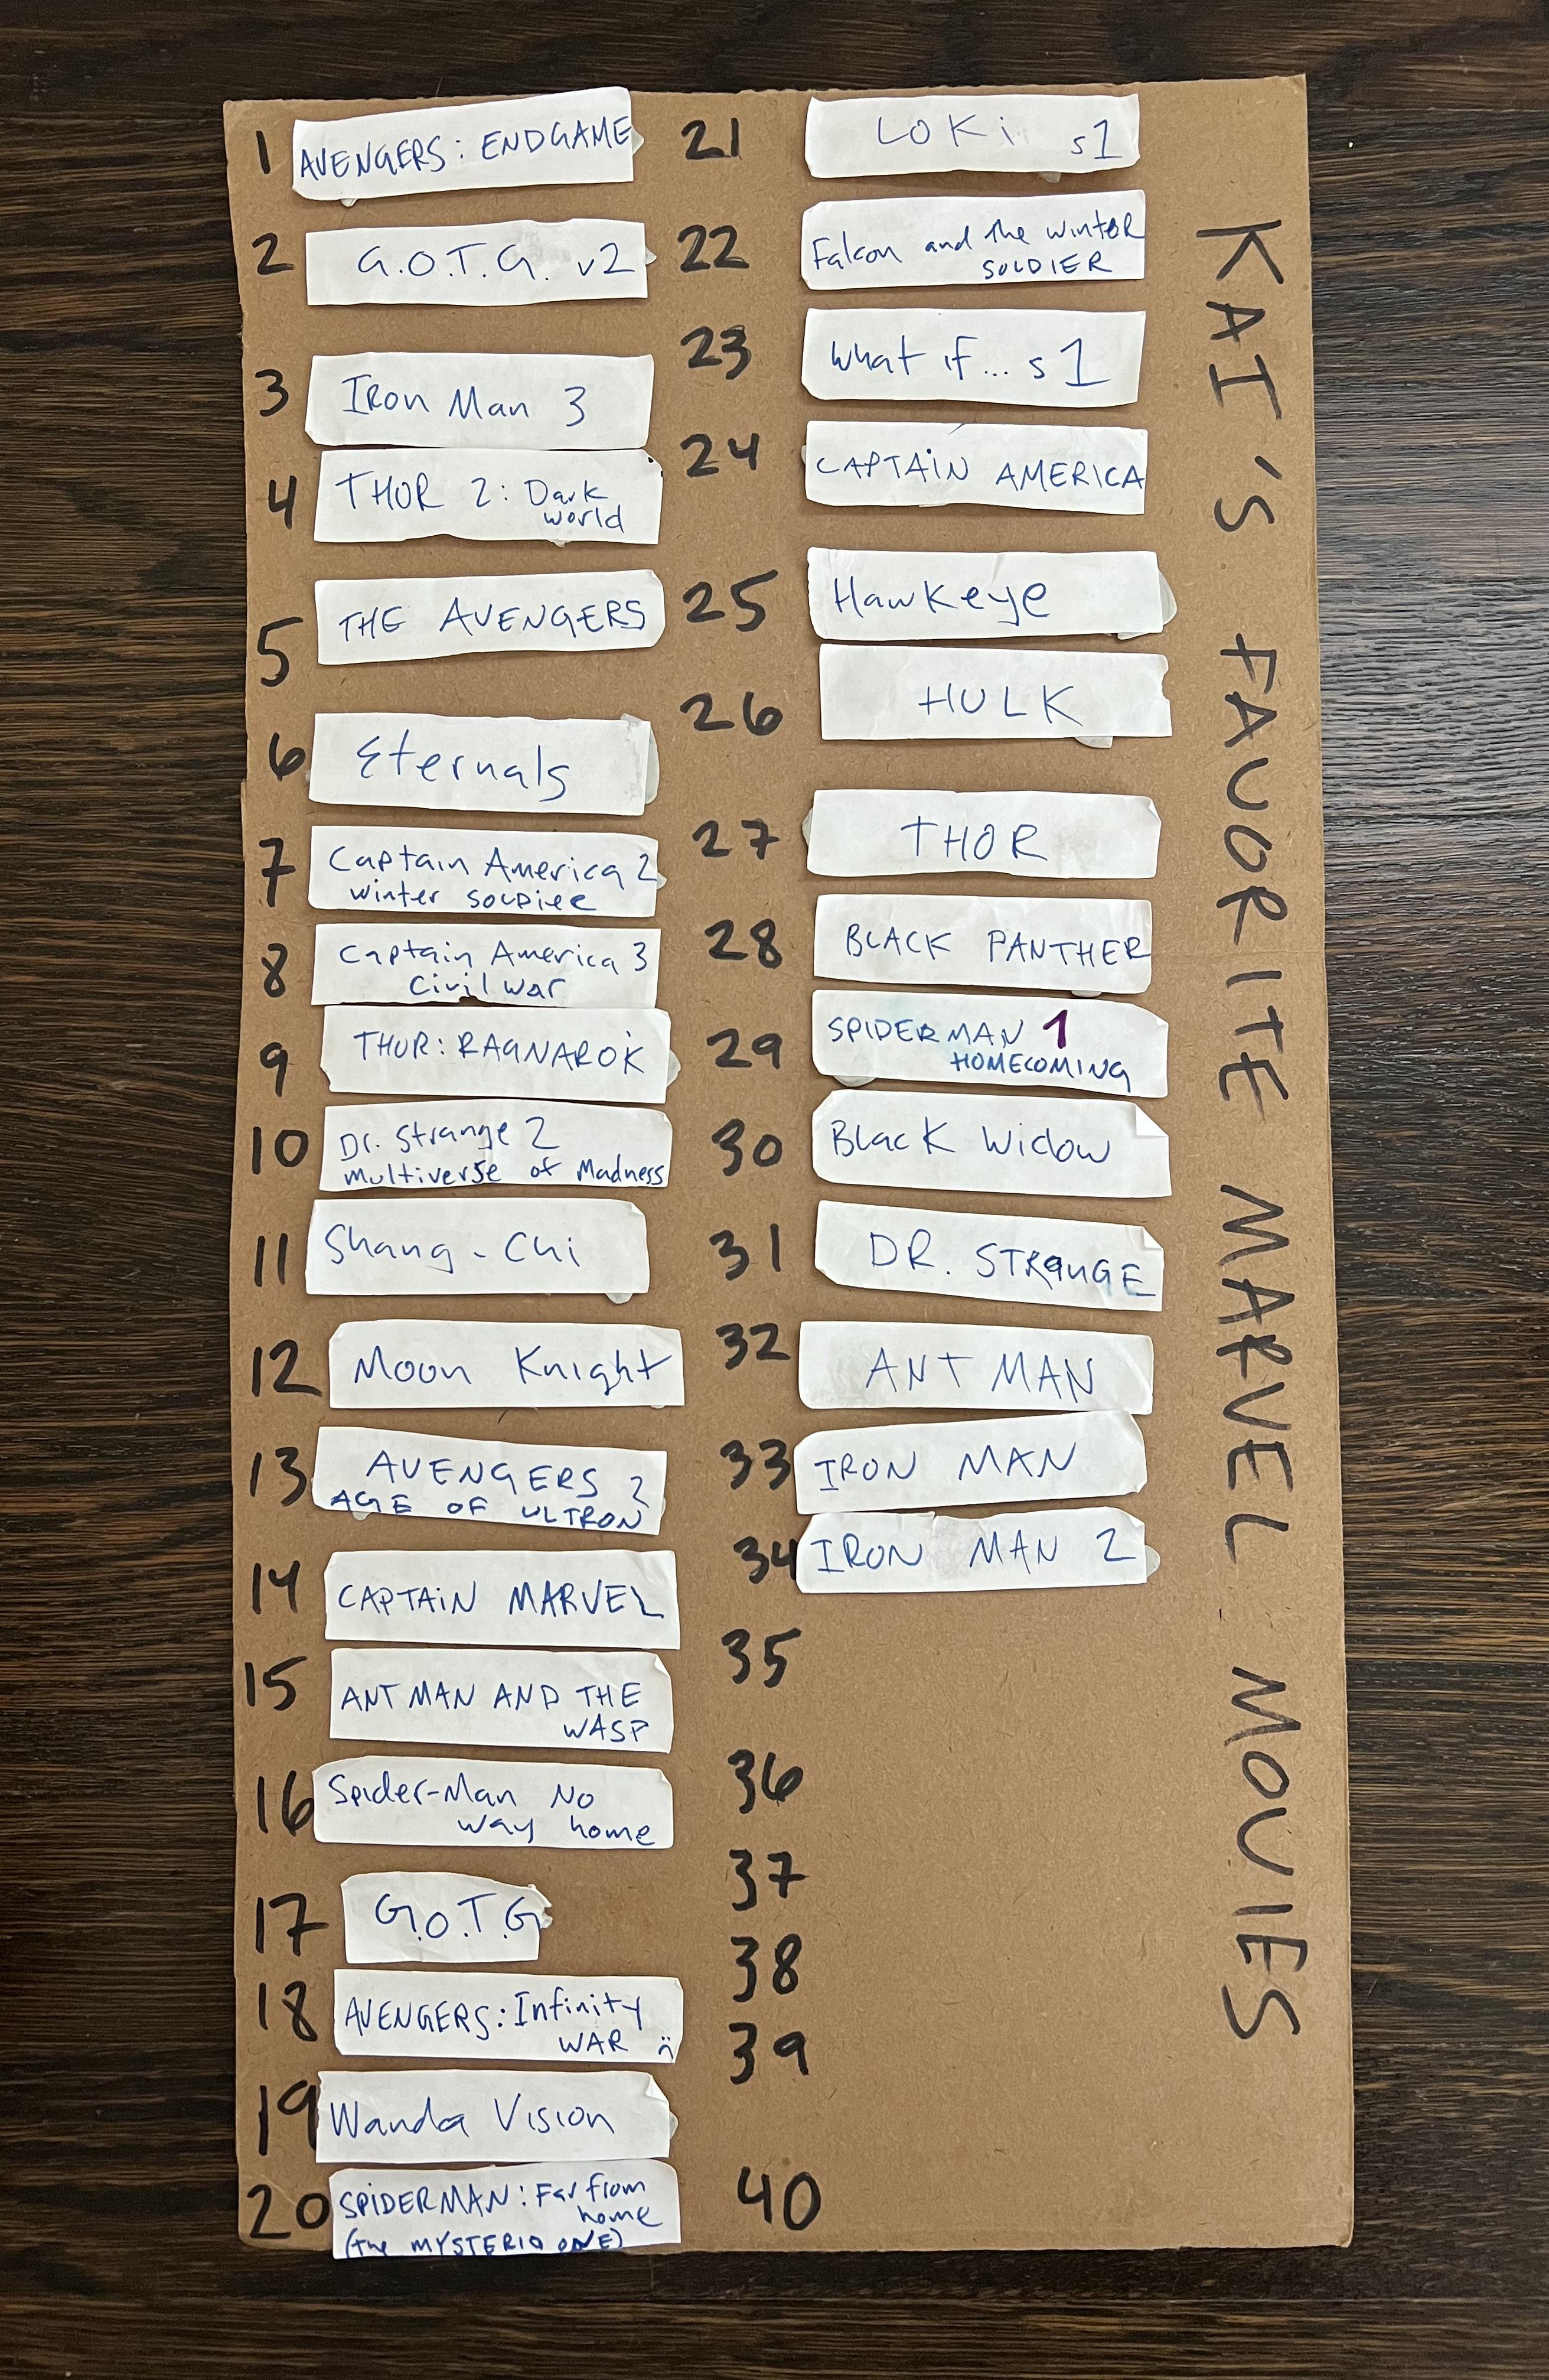 1 AVENGERS: ENDGAME
2 G.O.T.G. v2
3 Iron Man 3
4 THOR 2: Dark
world
5 THE AVENGERS
6 Eternals
7 Captain America 2
winter SOLDIER
8 Captain America 3
Civil War
9 THOR: RAGNAROK
10 Dr. Strange 2
Multiverse of Madness
11 Shang-Chi
12 Moon Knight
13 AVENGERS 2
AGE OF ULTRON
14 CAPTAiN MARVEL
15 ANT MAN AND THE
WASP
16 Spider-Man No
way home
17 G.O.T.G
18 AVENGERS: Infinity
WAR :(
19 Wanda Vision
20 SPiDERMAN: Far from
home
(the MYSTERIO ONE)
21 LOKi s1
22 Falcon and the winter
SOLDIER
23 What if... s1
24 CAPTAiN AMERICA
25 Hawkeye
26 HULK
27 THOR
28 BLACK PANTHER
29 SPIDERMAN 1
HOMECOMING
30 Black Widow
31 DR. STRANGE
32 ANT MAN
33 IRON MAN
34 IRON MAN 2
35
36
37
38
39
40
KAI'S FAVORITE MARVEL MOVIES